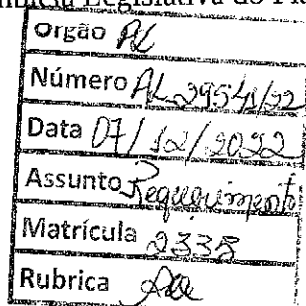 Legislativa do
Órgão AL
Número AL 29541/22
Data 07/12/2022
Assunto Requerimento
Matrícula 2338
Rubrica